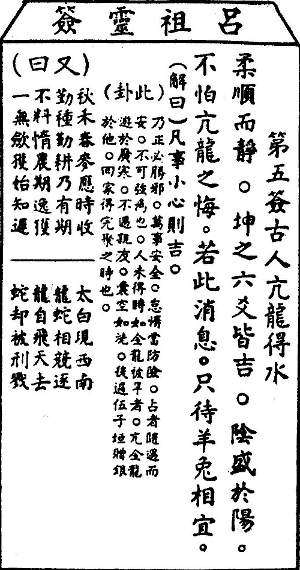 呂祖靈簽
第五簽古人亢龍得水
柔順而靜。坤之六爻皆吉。陰盛於陽。
不怕亢龍之悔。若此消息。只待羊兔相宜。
(解曰)凡事小心則吉。
(此卦)
乃正必勝邪。萬事安全。怠惰當防險。占者隨遇而
安。不可強為也。人未得時如金龍彼平者。亢金龍
遊於廣寒。不遇親友。囊空如洗。後遇伍子垣贈銀
於他。回家得完聚之時也。
(又曰)
秋禾春麥應時收
勤種勤耕乃有期
不料惰農期逸獲
一無斂獲始知遲
太白現西南
龍蛇相競逐
龍自飛天去
蛇却被刑戮